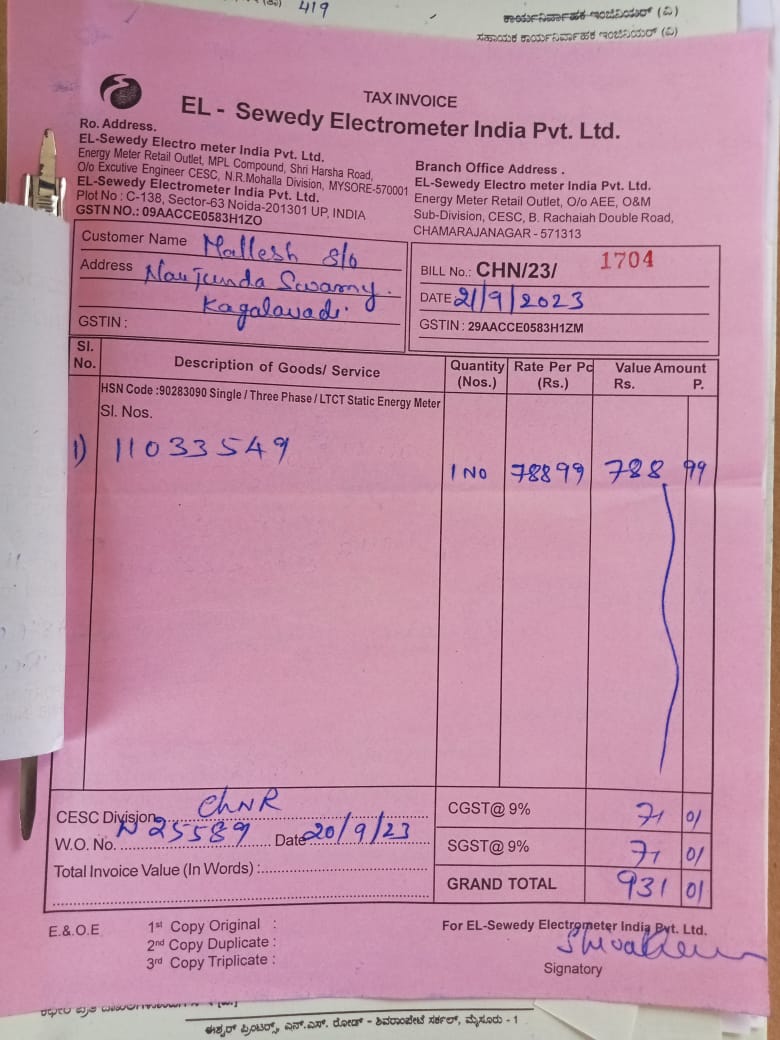 419
ಕಾರ್ಯನಿರ್ವಾಹಕ ಇಂಜಿನಿಯರ್ (ವಿ)
ಸಹಾಯಕ ಕಾರ್ಯನಿರ್ವಾಹಕ ಇಂಜಿನಿಯರ್ (ವಿ)
TAX INVOICE
EL - Sewedy Electrometer India Pvt. Ltd.
Ro. Address.
EL-Sewedy Electro meter India Pvt. Ltd.
Energy Meter Retail Outlet, MPL Compound, Shri Harsha Road,
O/o Excutive Engineer CESC, N.R.Mohalla Division, MYSORE-570001
EL-Sewedy Electrometer India Pvt. Ltd.
Plot No : C-138, Sector-63 Noida-201301 UP, INDIA
GSTN NO.: 09AACCE0583H1ZO
Branch Office Address .
EL-Sewedy Electro meter India Pvt. Ltd.
Energy Meter Retail Outlet, O/o AEE, O&M
Sub-Division, CESC, B. Rachaiah Double Road,
CHAMARAJANAGAR - 571313
Customer Name Mallesh S/o
Address Nanjunda Swamy.
Kagalavadi.
GSTIN :
BILL No.: CHN/23/ 1704
DATE 21/9/2023
GSTIN : 29AACCE0583H1ZM
Sl. No. Description of Goods/ Service Quantity (Nos.) Rate Per Pc (Rs.) Value Amount Rs. P.
HSN Code :90283090 Single / Three Phase / LTCT Static Energy Meter
Sl. Nos.
1) 11033549 1 No 78899 788 99
CESC Division ChNR
W.O. No. N25589 Date 20/9/23
Total Invoice Value (In Words) :
CGST@ 9% 71 01
SGST@ 9% 71 01
GRAND TOTAL 931 01
E.& O.E
1st Copy Original :
2nd Copy Duplicate :
3rd Copy Triplicate :
For EL-Sewedy Electrometer India Pvt. Ltd.
Signatory
ಈಶ್ವರ್ ಪ್ರಿಂಟರ್ಸ್, ಎನ್.ಎಸ್. ರೋಡ್ - ಶಿವರಾಂಪೇಟೆ ಸರ್ಕಲ್, ಮೈಸೂರು - 1